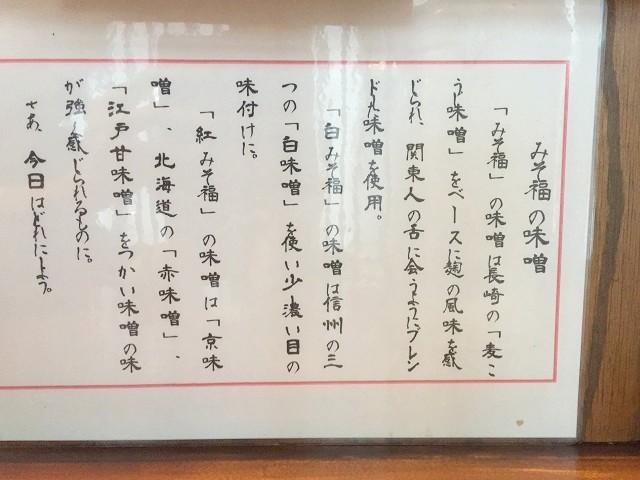 みそ福の味噌
「みそ福」の味噌は長崎の「麦こ
う味噌」をベースに麹の風味を感
じられ、関東人の舌に会うようにブレン
ドした味噌を使用。
「白みそ福」の味噌は信州の三
つの「白味噌」を使い少し濃い目の
味付けに。
「紅みそ福」の味噌は「京味
噌」、北海道の「赤味噌」、
「江戸甘味噌」をつかい味噌の味
が強く感じられるものに。
さあ、今日はどれにしよう。